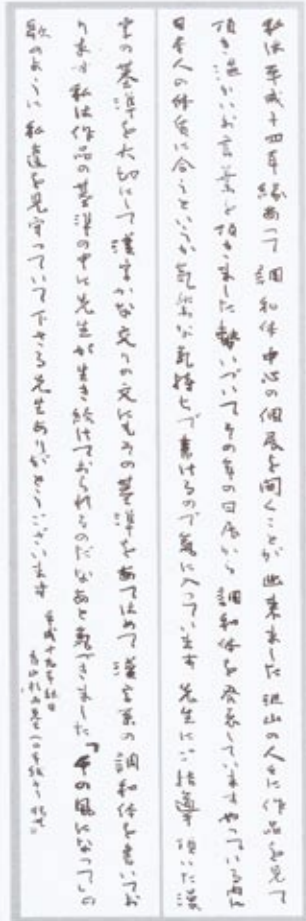 私は平成十四年縁あって調和体中心の個展を開くことが出来ました沢山の人々に作品を見て
頂き温かいお言葉を頂きました勢いづいてその年の日展から調和体を発表していますやっている内
日本人の体質に合うというか気楽な気持ちで書けるので気に入っています 先生にご指導頂いた漢
字の基準を大切にして漢字かな交りの文にもその基準をあてはめて漢字系の調和体を書いてお
ります私は作品の基準の中に先生が生き続けておられるのだなあと気づきました「千の風になって」の
歌のように私達を見守っていて下さる先生ありがとうございます
平成十九年